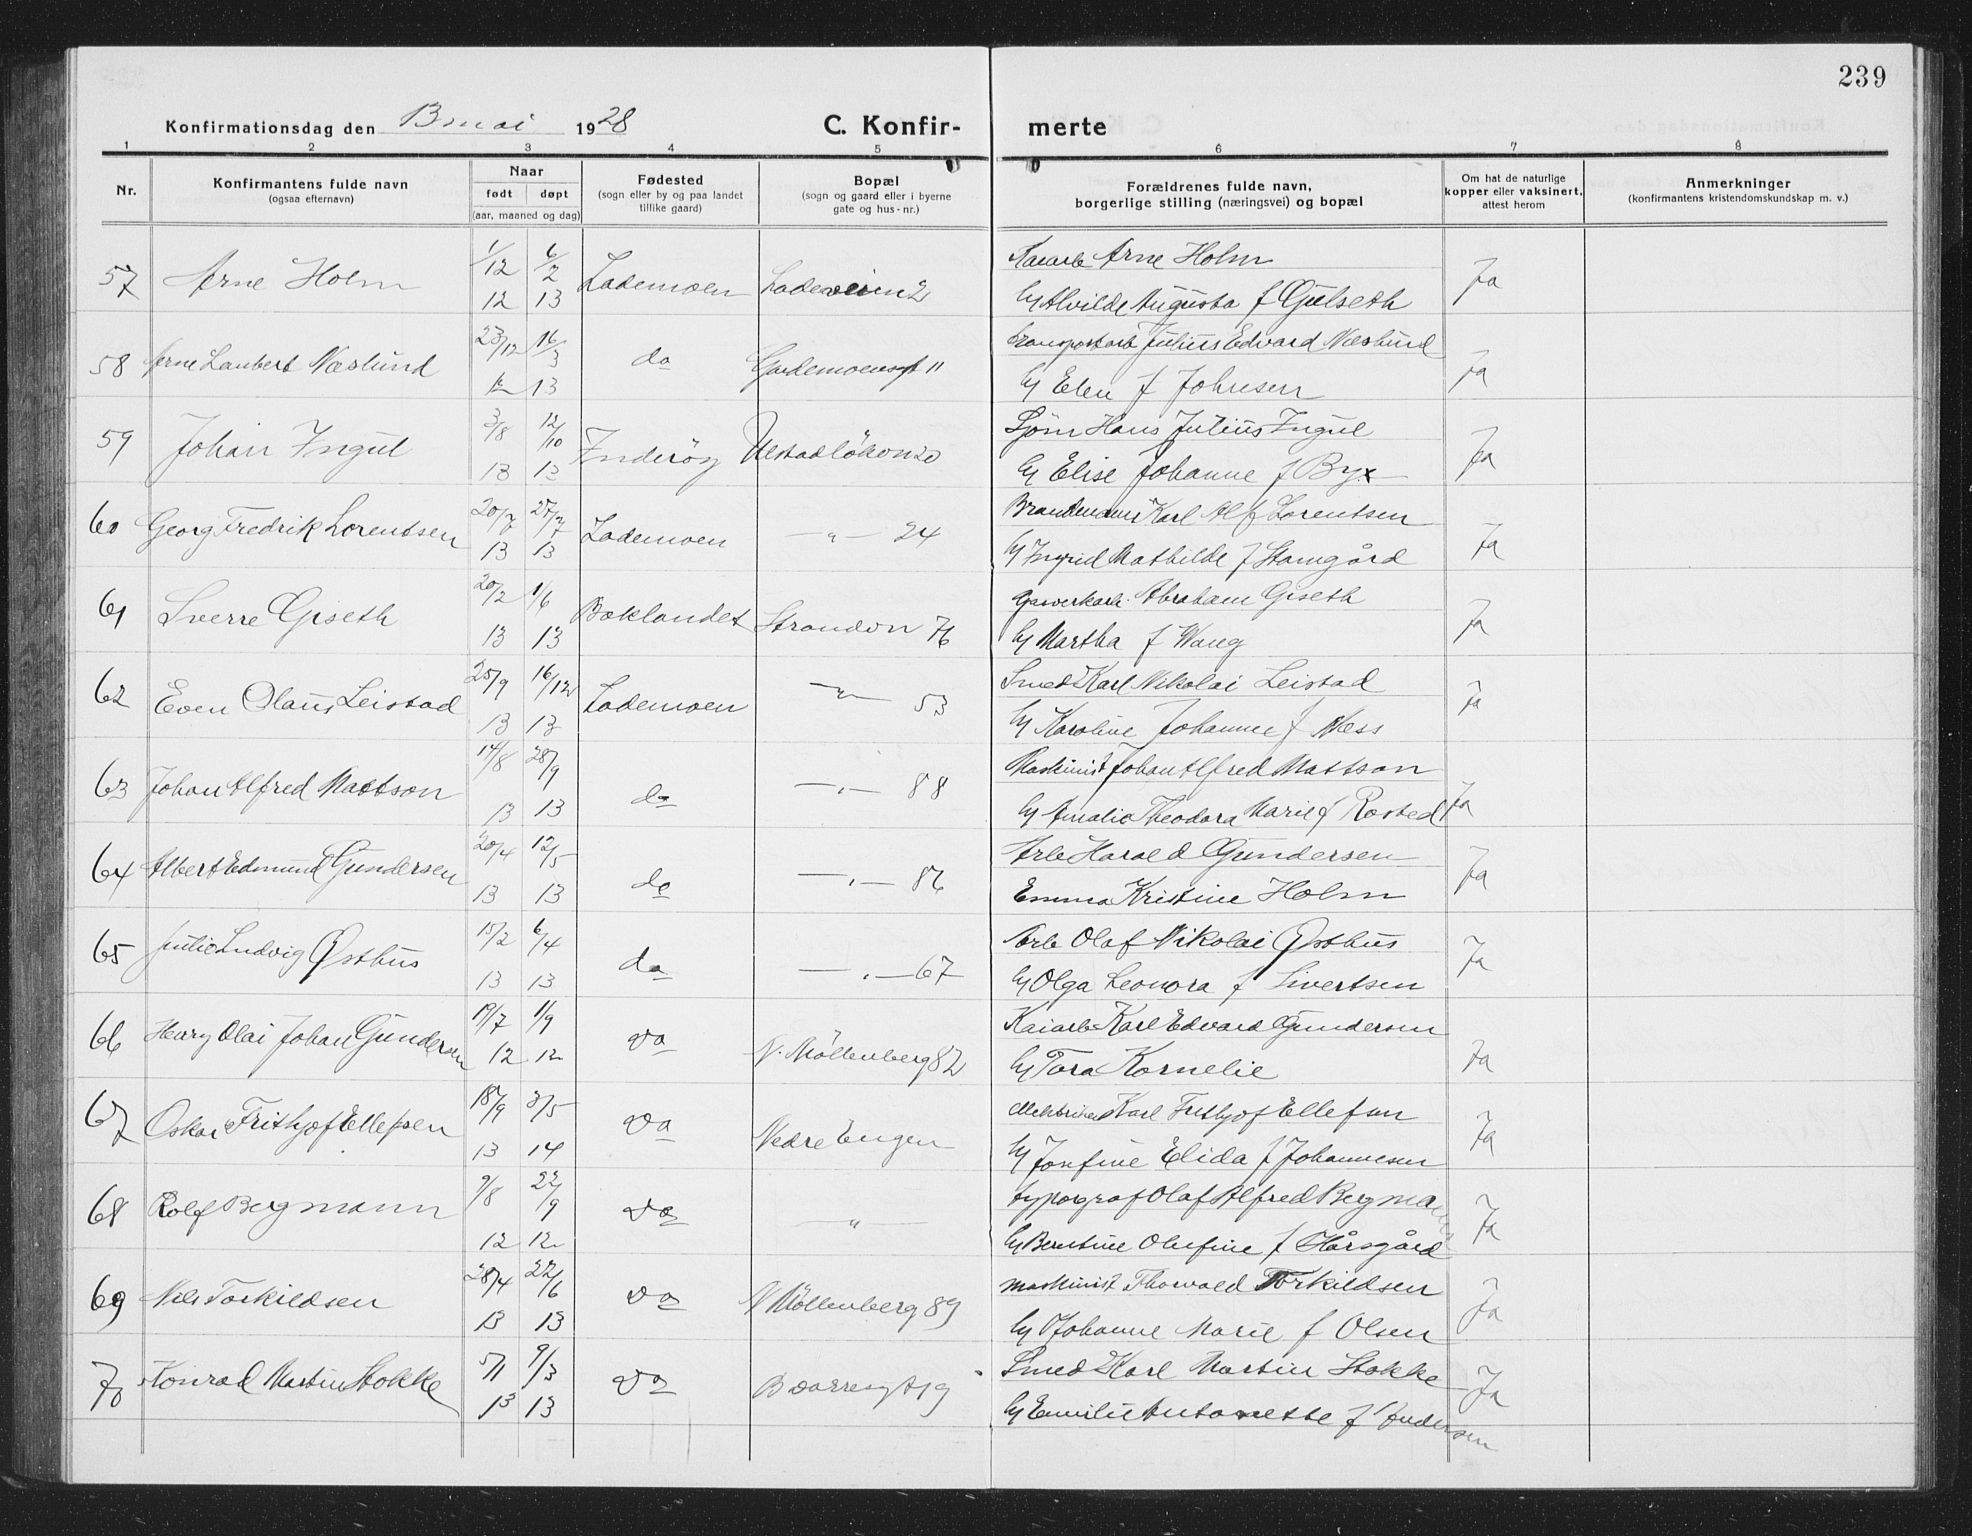 239
Konfirmationsdag den 13 mai 1928 C. Konfir- merte
1 2 3 4 5 6 7 8
Nr. Konfirmantens fulde navn (ogsaa efternavn)
Naar født døpt (aar, maaned og dag)
Fødested (sogn eller by og paa landet tillike gaard)
Bopæl (sogn og gaard eller i byerne gate og hus-nr.)
Forældrenes fulde navn, borgerlige stilling (næringsvei) og bopæl
Om hat de naturlige kopper eller vaksinert, attest herom
Anmerkninger (konfirmantens kristendomskundskap m. v.)
57 Arne Holm 1/12 12 6/2 13 Lademoen Ladeveien 2 Arne Holm Ja
Alvilde Augusta f Gulseth
58 Arne Lambert Næslund 23/12 12 16/3 13 do 11 Transportarb Julius Edvard Næslund Ja
Elen f Johnsen
59 Johan Ingul 3/8 13 12/10 13 Inderöy Ulstadlökvn 20 Sjöm Hans Julius Ingul Ja
Elise Johanne f Bye
60 Georg Fredrik Lorentsen 20/7 13 27/7 13 Lademoen —"— 24 Brandmann Karl Alf Lorentsen Ja
Ingrid Mathilde f Stamgård
61 Sverre Giseth 20/2 13 1/6 13 Baklandet Strandvn 76 Gasverkarb. Abraham Giseth Ja
Martha f Wang
62 Even Olaus Leistad 25/9 13 16/12 13 Lademoen —"— 53 Smed Karl Nikolai Leistad Ja
Karoline Johanne f Næss
63 Johan Alfred Mattson 14/8 13 28/9 13 do —"— 88 Maskinist Johan Alfred Mattson Ja
Amalie Theodora Marie f Rosted
64 Albert Edmund Gundersen 20/4 13 12/5 13 do —"— 86 Arb Harald Gundersen Ja
Emma Kristine Holm
65 Ludvig Østhus 15/2 13 6/4 13 do —"— 67 Arb Olaf Nikolai Østhus Ja
Olga Leonora f Sivertsen
66 Henry Olai Johan Gundersen 19/7 12 1/9 12 do N. Möllenberg 82 Kaiarb Karl Edvard Gundersen Ja
Tora Kornelie
67 Oskar Frithjof Ellefsen 18/9 13 3/5 14 do Nedre Engen Karl Frithjof Ellefsen Ja
Josefine Elida f Johannesen
68 Rolf Bergmann 9/8 12 22/9 12 do —"— typograf Olaf Alfred Bergmann Ja
Berntine Olufine f Hårsgård
69 Nils Torkildsen 28/4 13 22/6 13 do N Möllenberg 89 maskinist Thorvald Torkildsen Ja
Johanne Marie f Olsen
70 Konrad Martin Stokke 5/1 13 9/3 13 do 19 Smed Karl Martin Stokke Ja
Emilie Antonette f Andersen